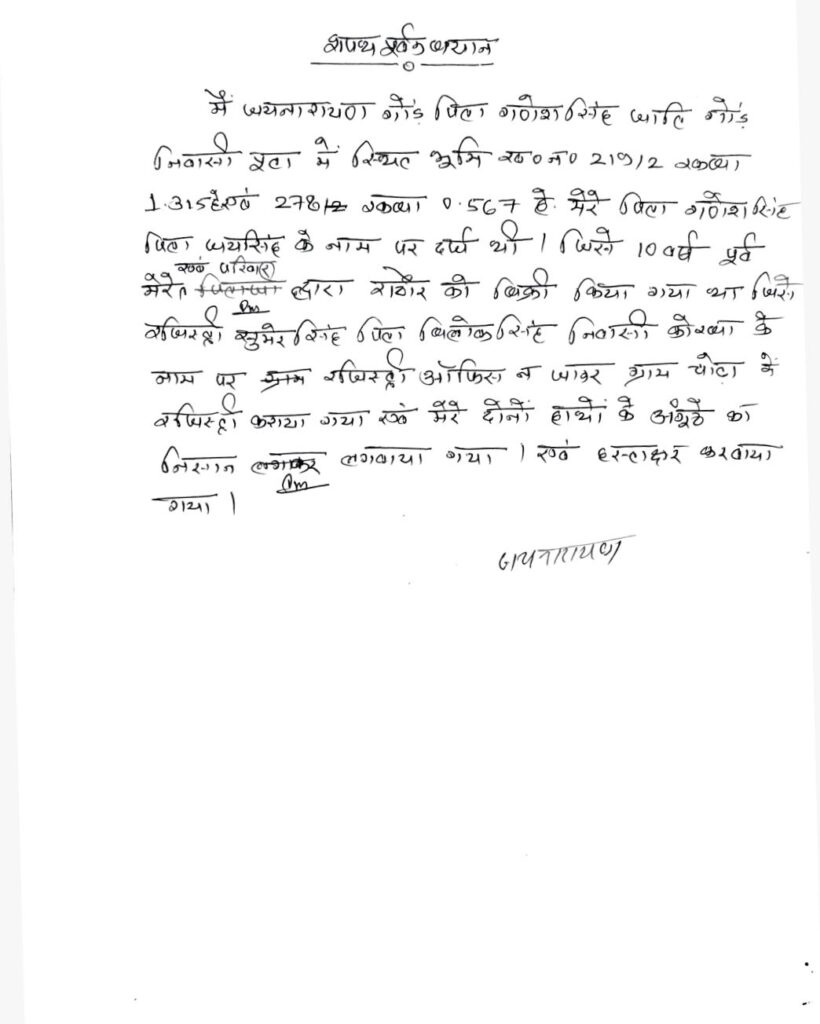 शपथ पूर्वक बयान
मैं जयनारायण गोंड़ पिता गणेश सिंह जाति गोंड़
निवासी पुटा में स्थित भूमि ख०न० 219/2 रकबा
1.315हे एवं 278/2 रकबा 0.567 हे. मेरे पिता गणेश सिंह
पिता जयसिंह के नाम पर दर्ज थी । जिसे 10 वर्ष पूर्व
एवं परिवार
मेरे द्वारा राठौर को बिक्री किया गया था जिसे
रजिस्ट्री सुमेर सिंह पिता त्रिलोक सिंह निवासी कोरबा के
नाम पर रजिस्ट्री ऑफिस न जाकर ग्राम चोटा में
रजिस्ट्री कराया गया एवं मेरे दोनों हाथों के अंगूठे का
निशान लगवाया गया । एवं हस्ताक्षर करवाया
गया ।
जयनारायण